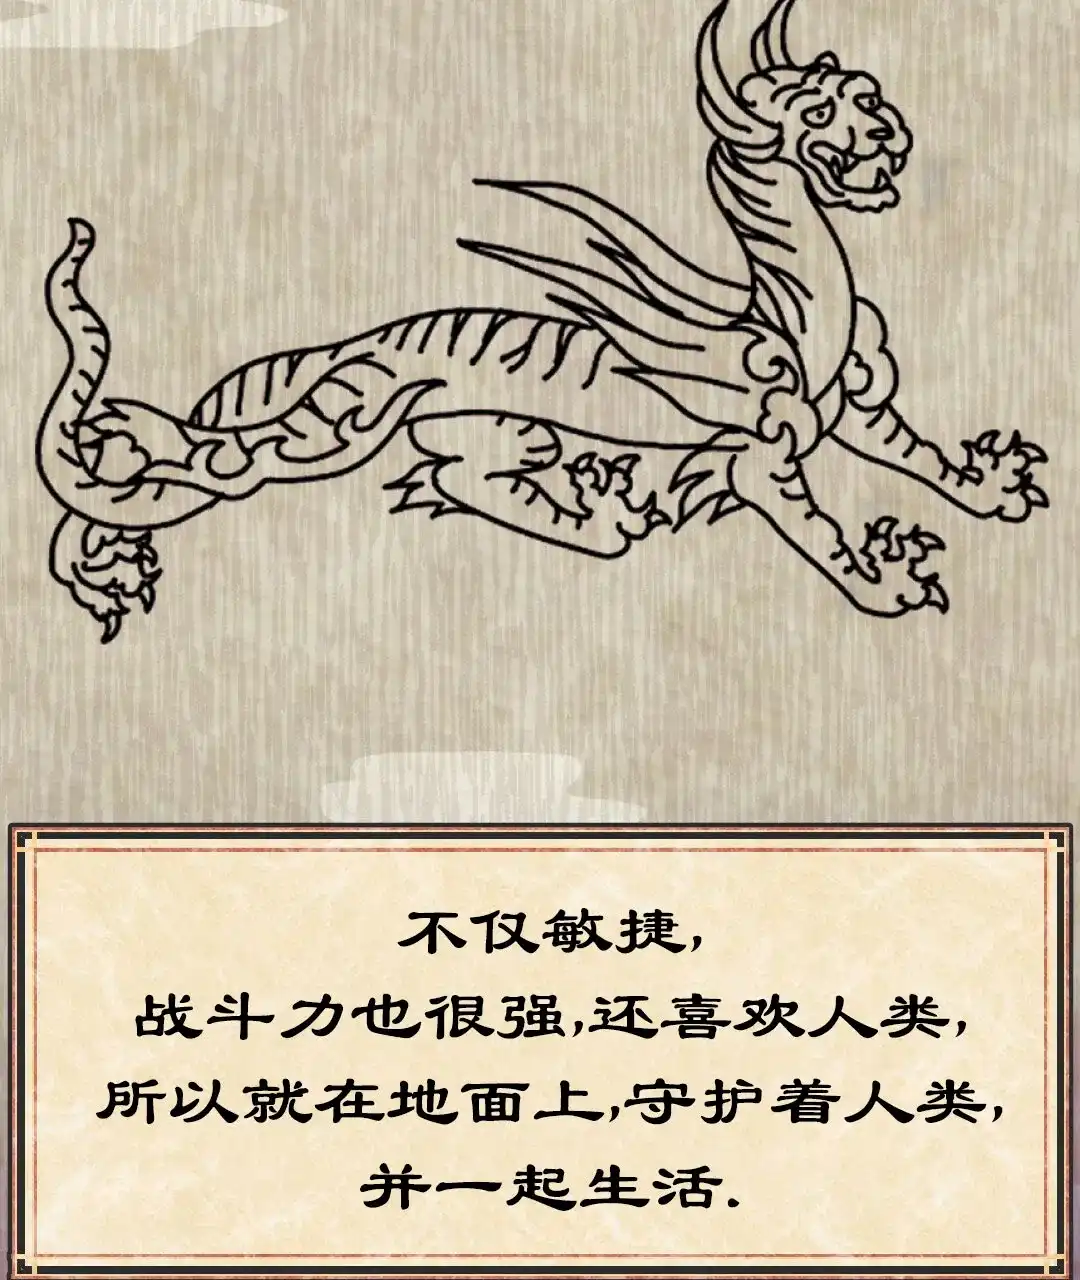 不仅敏捷,
战斗力也很强,还喜欢人类,
所以就在地面上,守护着人类,
并一起生活.